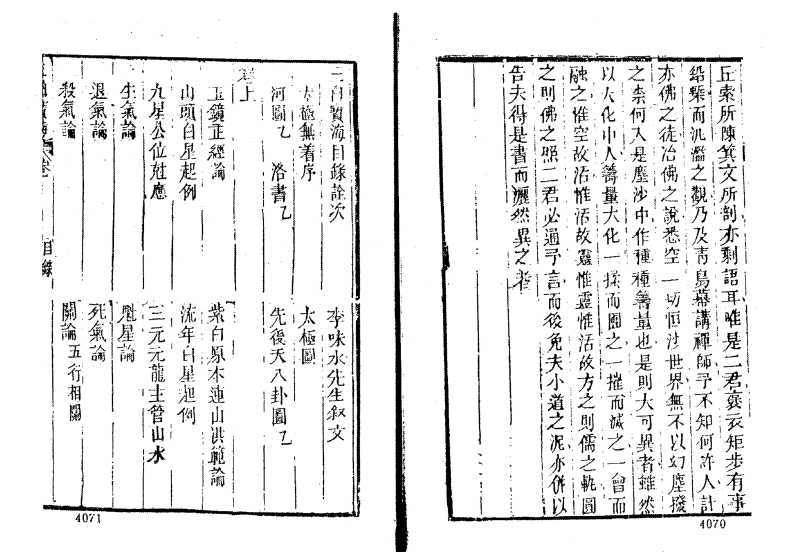 丘索所陳箕文所剖亦剩語耳唯是二君裒衣矩步有事
鉛槧而汎濫之觀乃及靑烏幕講禪師予不知何許人計
亦佛之徒冶佛之說悉空一切恒沙世界無不以幻塵撥
之柰何入是塵沙中作種種籌量也是則大可異者雖然
以大化中人籌量大化一揉而圈之一摧而滅之一會而
融之惟空故活惟活故靈惟靈惟活故方之則儒之軌圓
之則佛之照二君必通予言而後免夫小道之泥亦併以
告夫得是書而灑然異之者
4070
三白寶海目錄詮次
太極無着序
李味水先生叙文
太極圖
河圖乙
洛書乙
先後天八卦圖乙
卷上
玉鏡正經論
紫白原本連山洪範論
山頭白星起例
流年白星起例
九星公位姓應
三元元龍主管山水
生氣論
魁星論
退氣論
死氣論
殺氣論
關論五行相關
目錄
4071